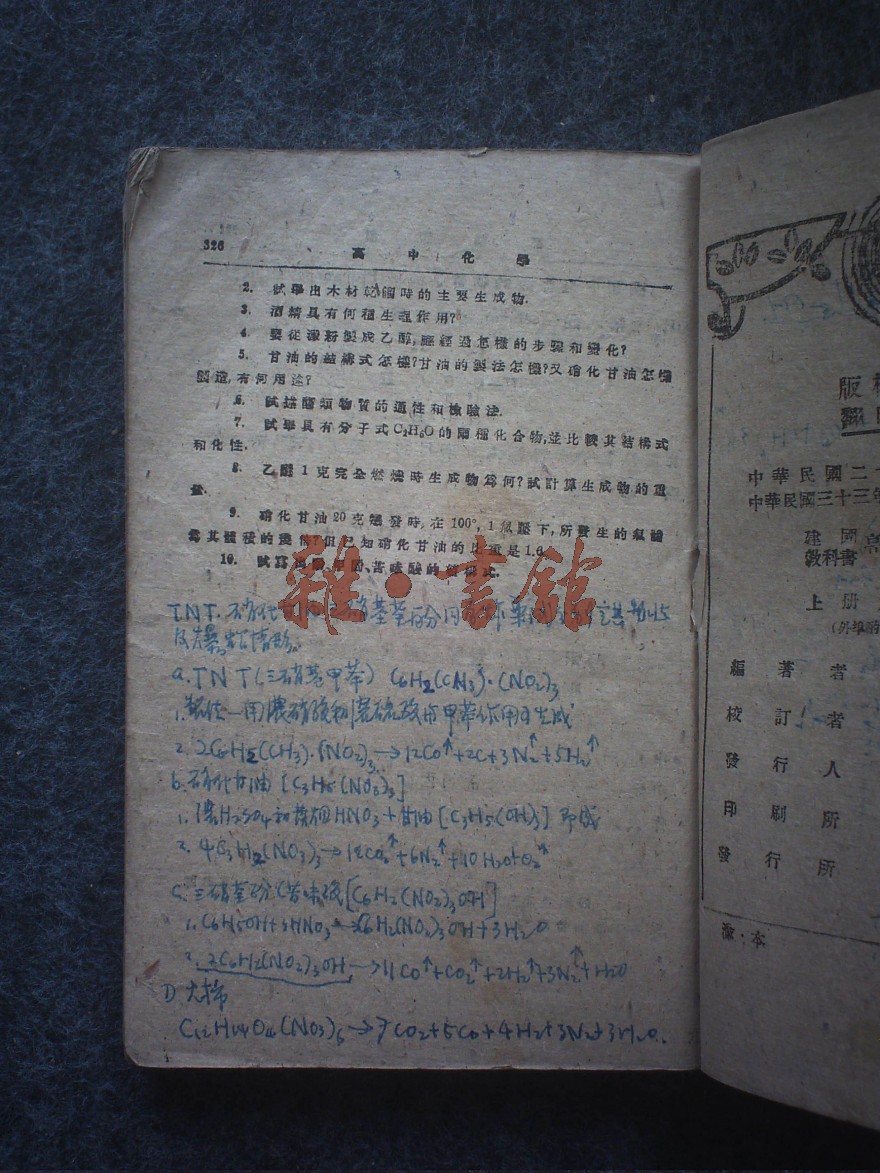 326
高中化學
2. 試舉出木材乾餾時的主要生成物.
3. 酒精具有何種生理作用?
4. 要從澱粉製成乙醇,應經過怎樣的步驟和變化?
5. 甘油的結構式怎樣?甘油的製法怎樣?又硝化甘油怎樣
製造,有何用途?
6. 試述醛類物質的通性和檢驗法.
7. 試舉具有分子式C₂H₆O的兩種化合物,並比較其結構式
和化性.
8. 乙醚1克完全燃燒時生成物爲何?試計算生成物的重
量.
9. 硝化甘油20克爆發時,在100°,1氣壓下,所發生的氣體
爲其體積的幾倍?但已知硝化甘油的比重是1.6.
10. 試寫
苦味酸的
雜·書館
TNT.
及爆炸情形。
a. TNT(三硝基甲苯) C₆H₂(CH₃)·(NO₂)₃
1. 製法—用濃硝酸和濃硫酸与甲苯作用生成
2. 2C₆H₂(CH₃)·(NO₂)₃→12CO↑+2C+3N₂↑+5H₂↑
b. 硝化甘油 [C₃H₅(NO₃)₃]
1. 濃H₂SO₄和濃HNO₃+甘油[C₃H₅(OH)₃]即成
2. 4C₃H₅(NO₃)₃→12CO₂↑+6N₂↑+10H₂O+O₂↑
C. 三硝基酚(苦味酸)[C₆H₂(NO₂)₃OH]
1. C₆H₅OH+3HNO₃→C₆H₂(NO₂)₃OH+3H₂O
2. 2C₆H₂(NO₂)₃OH→11CO↑+CO₂↑+2H₂↑+3N₂↑+H₂O
D 火棉
C₁₂H₁₄O₄(NO₃)₆→7CO₂+5CO+4H₂+3N₂+3H₂O.
版
中華民國二十
中華民國三十三年
建國
教科書
上册
編著者
校訂者
發行人
印刷所
發行所
本